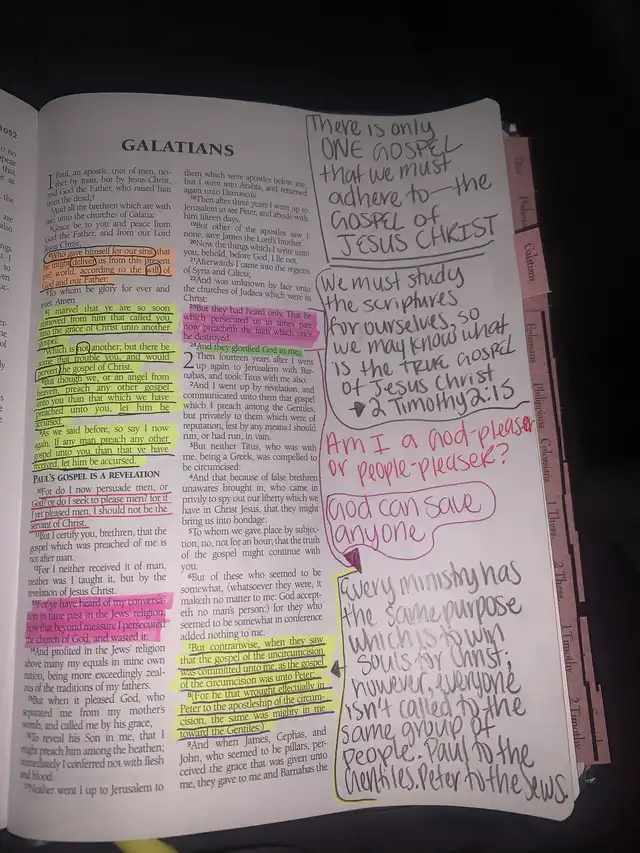 1052
GALATIANS
1 Paul, an apostle, (not of men, nei-
ther by man, but by Jesus Christ,
and God the Father, who raised him
from the dead;)
2And all the brethren which are with
me, unto the churches of Galatia:
3Grace be to you and peace from
God the Father, and from our Lord
Jesus Christ,
4Who gave himself for our sins, that
he might deliver us from this present
evil world, according to the will of
God and our Father:
5To whom be glory for ever and
ever. Amen.
6I marvel that ye are so soon
removed from him that called you
into the grace of Christ unto another
gospel:
7Which is not another; but there be
some that trouble you, and would
pervert the gospel of Christ.
8But though we, or an angel from
heaven, preach any other gospel
unto you than that which we have
preached unto you, let him be
accursed.
9As we said before, so say I now
again, If any man preach any other
gospel unto you than that ye have
received, let him be accursed.
PAUL'S GOSPEL IS A REVELATION
10For do I now persuade men, or
God? or do I seek to please men? for if
I yet pleased men, I should not be the
servant of Christ.
11But I certify you, brethren, that the
gospel which was preached of me is
not after man.
12For I neither received it of man,
neither was I taught it, but by the
revelation of Jesus Christ.
13For ye have heard of my conversa-
tion in time past in the Jews' religion,
how that beyond measure I persecuted
the church of God, and wasted it:
14And profited in the Jews' religion
above many my equals in mine own
nation, being more exceedingly zeal-
ous of the traditions of my fathers.
15But when it pleased God, who
separated me from my mother's
womb, and called me by his grace,
16To reveal his Son in me, that I
might preach him among the heathen;
immediately I conferred not with flesh
and blood:
17Neither went I up to Jerusalem to
them which were apostles before me;
but I went into Arabia, and returned
again unto Damascus.
18Then after three years I went up to
Jerusalem to see Peter, and abode with
him fifteen days.
19But other of the apostles saw I
none, save James the Lord's brother.
20Now the things which I write unto
you, behold, before God, I lie not.
21Afterwards I came into the regions
of Syria and Cilicia;
22And was unknown by face unto
the churches of Judaea which were in
Christ:
23But they had heard only, That he
which persecuted us in times past
now preacheth the faith which once
he destroyed.
24And they glorified God in me.
2 Then fourteen years after I went
up again to Jerusalem with Bar-
nabas, and took Titus with me also.
2And I went up by revelation, and
communicated unto them that gospel
which I preach among the Gentiles,
but privately to them which were of
reputation, lest by any means I should
run, or had run, in vain.
3But neither Titus, who was with
me, being a Greek, was compelled to
be circumcised:
4And that because of false brethren
unawares brought in, who came in
privily to spy out our liberty which we
have in Christ Jesus, that they might
bring us into bondage:
5To whom we gave place by subjec-
tion, no, not for an hour; that the truth
of the gospel might continue with
you.
6But of these who seemed to be
somewhat, (whatsoever they were, it
maketh no matter to me: God accept-
eth no man's person:) for they who
seemed to be somewhat in conference
added nothing to me:
7But contrariwise, when they saw
that the gospel of the uncircumcision
was committed unto me, as the gospel
of the circumcision was unto Peter;
8(For he that wrought effectually in
Peter to the apostleship of the circum-
cision, the same was mighty in me
toward the Gentiles:)
9And when James, Cephas, and
John, who seemed to be pillars, per-
ceived the grace that was given unto
me, they gave to me and Barnabas the
There is only
ONE GOSPEL
that we must
adhere to—the
GOSPEL of
JESUS CHRIST
We must study
the scriptures
for ourselves, so
we may know what
is the TRUE GOSPEL
of Jesus Christ
2 Timothy 2:15
Am I a God-pleaser
or people-pleaser?
God can save
anyone
Every ministry has
the same purpose
which is to win
souls for Christ;
however, everyone
isn't called to the
same group of
people. Paul to the
Gentiles. Peter to the Jews.
Galatians
Ephesians
Philippians
Colossians
1 Thess
2 Thess
1 Timothy
2 Timothy